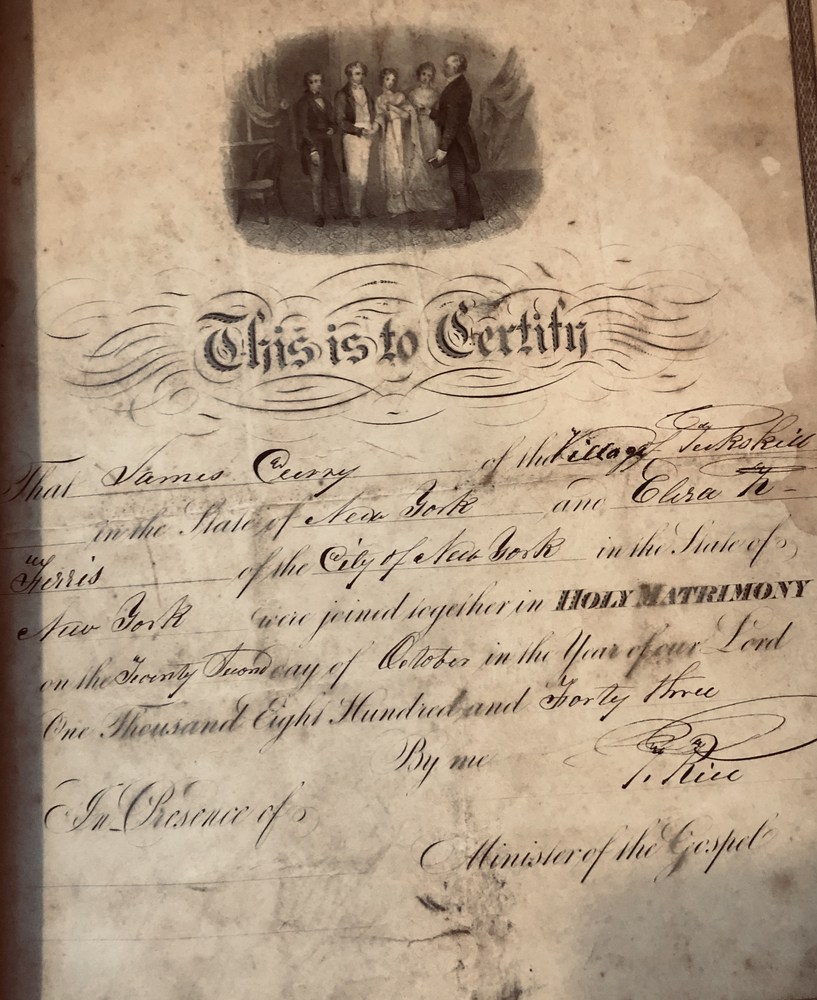 This is to Certify
That James Curry of the Village of Peekskill
in the State of New York and Eliza
Ferris of the City of New York in the State of
New York were joined together in HOLY MATRIMONY
on the Twenty Second day of October in the Year of our Lord
One Thousand Eight Hundred and Forty three
By me Rice
In Presence of
Minister of the Gospel